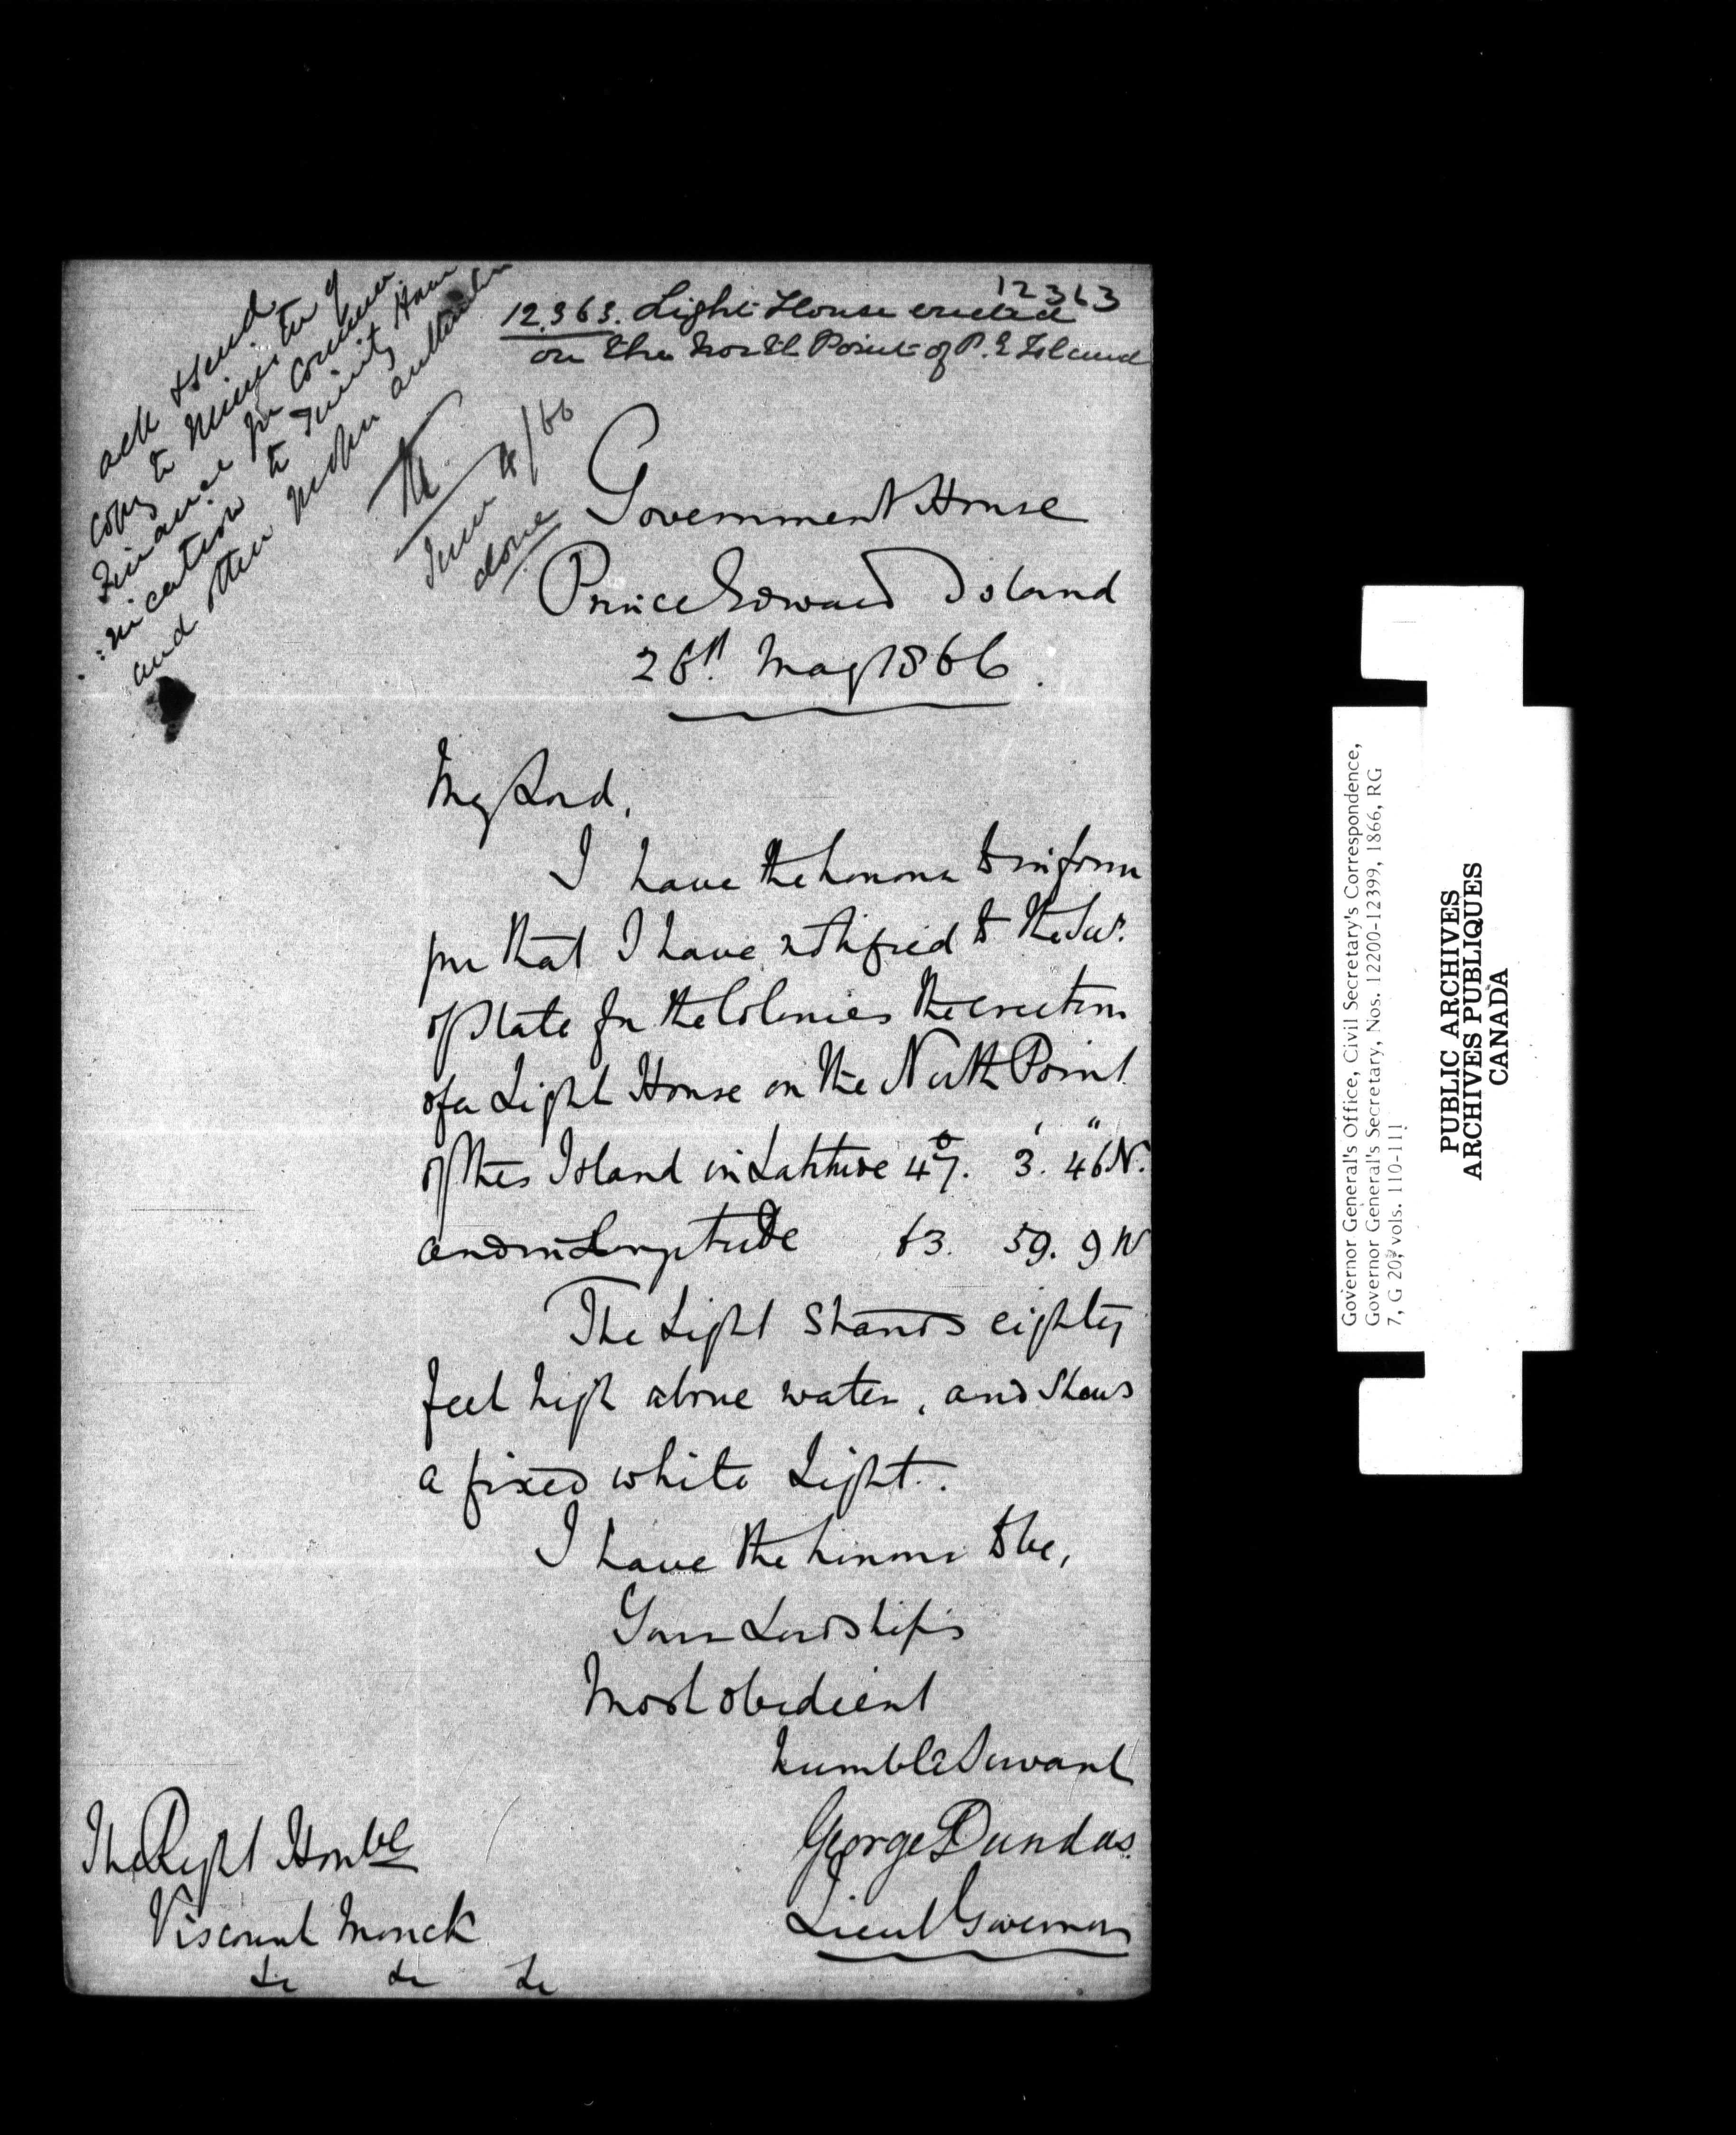 12363
12,363. Light House erected
on the North Point of P. E Island
ack & send
copy to Minister of
Finance for commu
:nication to Trinity House
and other proper authorities
M
June 8/66
done
Government House
Prince Edward Island
28th. May 1866.
My Lord,
I have the honor to inform
you that I have notified to the Secy.
of State for the Colonies the erection
of a Light House on the North Point
of this Island in Latitude 47°. 3'. 46" N.
and in Longitude 63. 59. 9 W
The Light stands eighty
feet high above water, and shews
a fixed white Light.
I have the honor to be,
Your Lordship's
Most obedient
humble Servant
George Dundas.
Lieut Governor
The Right Honble
Viscount Monck
&c &c &c
Governor General's Office, Civil Secretary's Correspondence,
Governor General's Secretary, Nos. 12200-12399, 1866, RG
7, G 20, vols. 110-111
PUBLIC ARCHIVES
ARCHIVES PUBLIQUES
CANADA